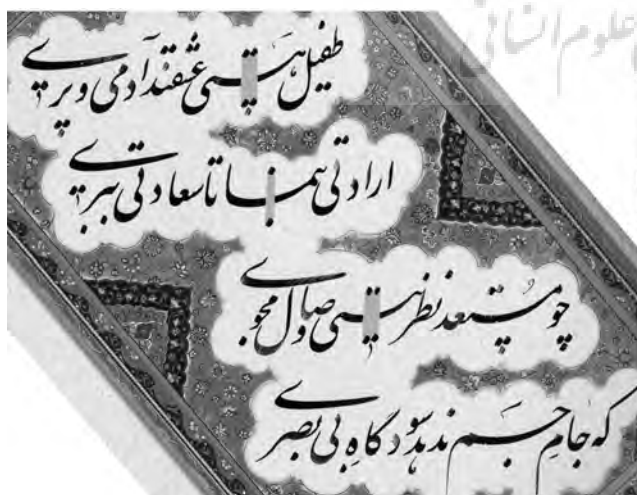 علوم انسانی
طفیل هستی عشقند آدمی و پری
ارادتی بنما تا سعادتی ببری
چو مستعد نظر نیستی وصال مجوی
که جام جم ندهد سود گاه بی بصری